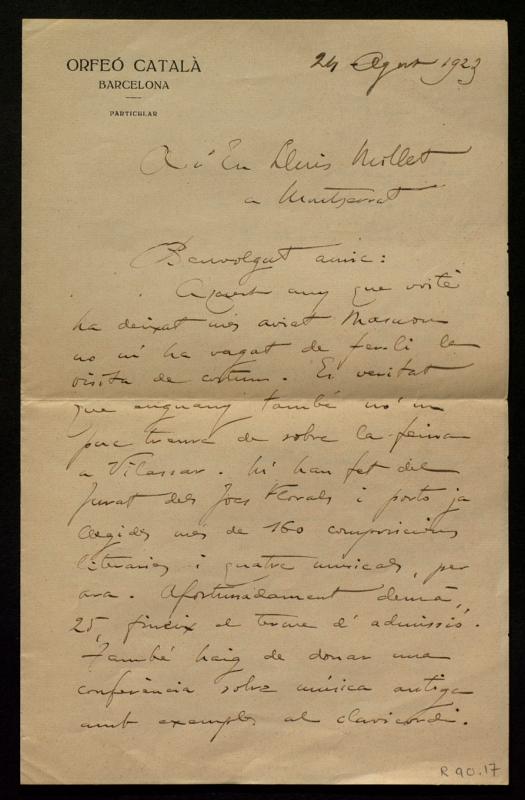 ORFEÓ CATALÀ
BARCELONA
PARTICULAR
24 Agost 1923
A n' En Lluis Millet
a Montserrat
Benvolgut amic:
Aquest any que vostè
ha deixat més aviat Masnou
no m' ha vagat de fer-li la
visita de costum. Es veritat
que enguany també no'm
puc treure de sobre la feina
a Vilassar. M' han fet del
Jurat dels Jocs Florals i porto ja
llegides mes de 160 composicions
literaries i quatre musicals, per
ara. Afortunadament demà,
25, fineix el terme d' admissió.
També haig de donar una
conferència sobre música antiga
amb exemples al clavicordi.
R 90.17